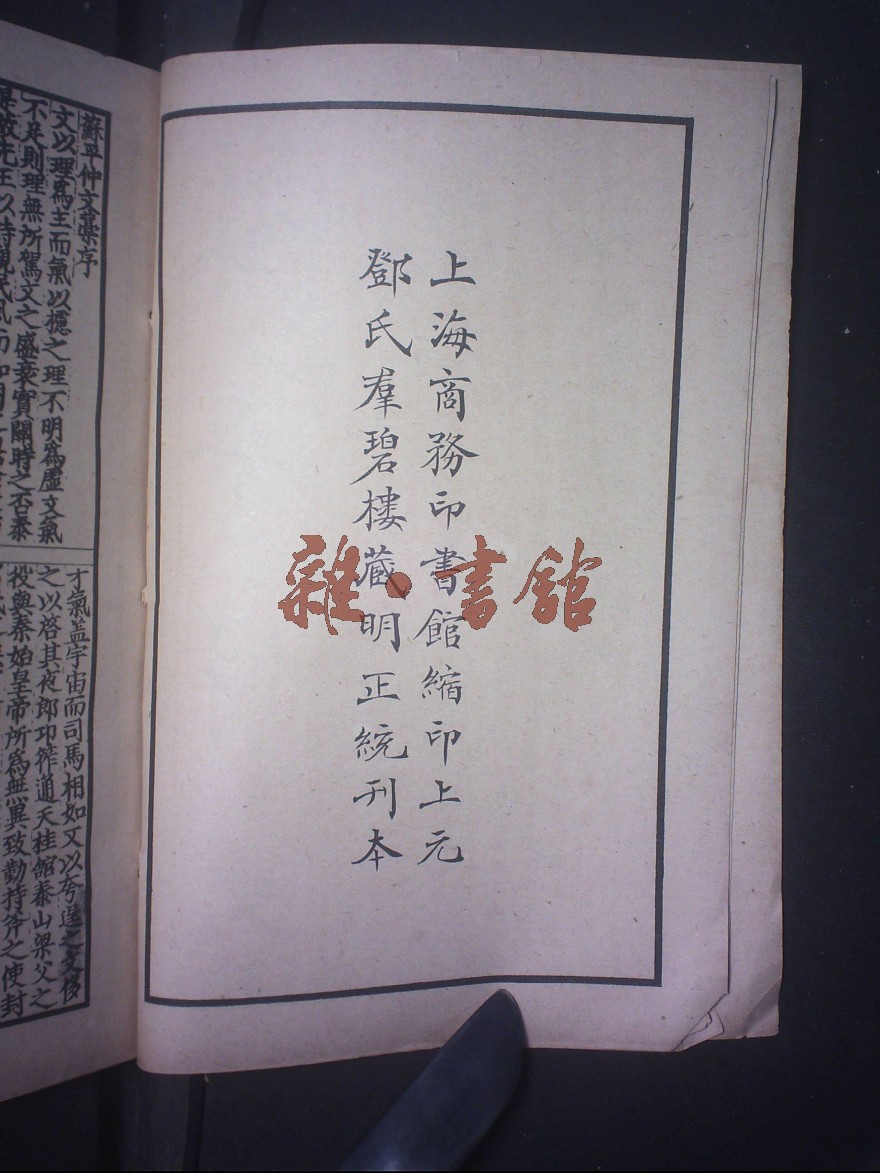 上海商務印書館縮印上元
鄧氏羣碧樓藏明正統刊本
雜·書館
蘇平仲文藁序
文以理爲主而氣以攄之理不明爲虛文氣
不足則理無所駕文之盛衰實關時之否泰
是故先王以詩觀民風而知
才氣蓋宇宙而司馬相如文以夸逞之文侈
之以啓其夜郎卭筰通天桂館泰山梁父之
役與秦始皇帝所爲無異致勤持斧之使封